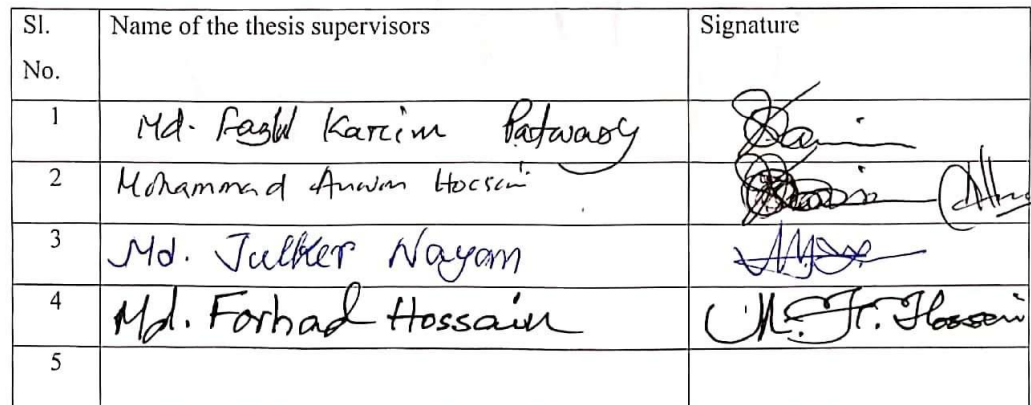 Sl. No. Name of the thesis supervisors Signature
1 Md. Fazlul Karim Patwary
2 Mohammad Anwar Hossain
3 Md. Julker Nayan
4 Md. Forhad Hossain M. F. Hossain
5